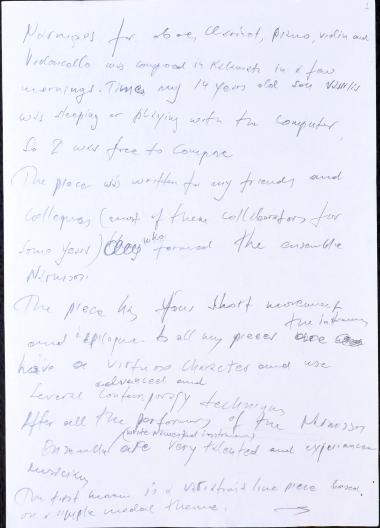 1
for oboe, clarinet, piano, violin and
Violoncello was composed in in a few
mornings. Times my 14 years old son Vassilis
was sleeping or playing with the computer,
So I was free to compose
The piece was written for my friends and
collegues (most of them collaborators for
some years) who formed the ensemble
The piece has four short movement
and epilogue to all my pieces the instruments
have a virtuoso character and use
advanced and
several contemporary techniques
After all the performers of the
Ensemble are very talented and experienced
musicians
The first is a piece based
on a simple modal theme.